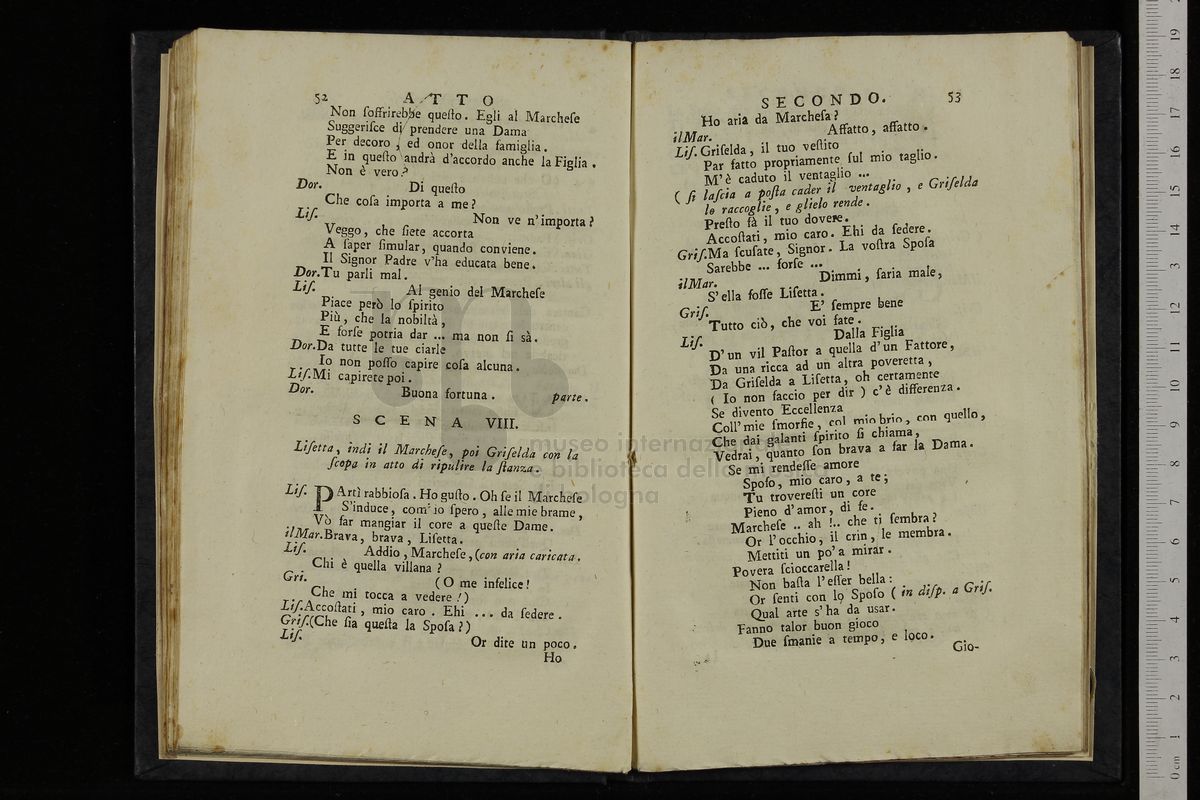 52 ATTO
Non ſoffrirebbe queſto. Egli al Marcheſe
Suggeriſce di prendere una Dama
Per decoro, ed onor della famiglia.
E in queſto andrà d'accordo anche la Figlia.
Non è vero?
Dor. Di queſto
Che coſa importa a me?
Liſ. Non ve n'importa?
Veggo, che ſiete accorta
A ſaper ſimular, quando conviene.
Il Signor Padre v'ha educata bene.
Dor. Tu parli mal.
Liſ. Al genio del Marcheſe
Piace però lo ſpirito
Più, che la nobiltà,
E forſe potria dar ... ma non ſi sà.
Dor. Da tutte le tue ciarle
Io non poſſo capire coſa alcuna.
Liſ. Mi capirete poi.
Dor. Buona fortuna. parte.
SCENA VIII.
Liſetta, indi il Marcheſe, poi Griſelda con la
ſcopa in atto di ripulire la ſtanza.
Liſ. PArtì rabbioſa. Ho guſto. Oh ſe il Marcheſe
S'induce, com' io ſpero, alle mie brame,
Vò far mangiar il core a queſte Dame.
il Mar. Brava, brava, Liſetta.
Liſ. Addio, Marcheſe, (con aria caricata.
Chi è quella villana?
Gri. (O me infelice!
Che mi tocca a vedere!)
Liſ. Accoſtati, mio caro. Ehi ... da ſedere.
Griſ. (Che ſia queſta la Spoſa?)
Liſ. Or dite un poco.
Ho
SECONDO. 53
Ho aria da Marcheſa?
il Mar. Affatto, affatto.
Liſ. Griſelda, il tuo veſtito
Par fatto propriamente ſul mio taglio.
M'è caduto il ventaglio ...
( ſi laſcia a poſta cader il ventaglio, e Griſelda
lo raccoglie, e glielo rende.
Preſto fà il tuo dovere.
Accoſtati, mio caro. Ehi da ſedere.
Griſ. Ma ſcuſate, Signor. La voſtra Spoſa
Sarebbe ... forſe ...
il Mar. Dimmi, ſaria male,
S'ella foſſe Liſetta.
Griſ. E' ſempre bene
Tutto ciò, che voi fate.
Liſ. Dalla Figlia
D'un vil Paſtor a quella d'un Fattore,
Da una ricca ad un altra poveretta,
Da Griſelda a Liſetta, oh certamente
( Io non faccio per dir ) c'è differenza.
Se divento Eccellenza
Coll' mie ſmorfie, col mio brio, con quello,
Che dai galanti ſpirito ſi chiama,
Vedrai, quanto ſon brava a far la Dama.
Se mi rendeſſe amore
Spoſo, mio caro, a te;
Tu trovereſti un core
Pieno d'amor, di fe.
Marcheſe .. ah !.. che ti ſembra?
Or l'occhio, il crin, le membra.
Mettiti un po' a mirar.
Povera ſcioccarella!
Non baſta l'eſſer bella:
Or ſenti con lo Spoſo ( in diſp. a Griſ.
Qual arte s'ha da usar.
Fanno talor buon gioco
Due ſmanie a tempo, e loco.
Gio-